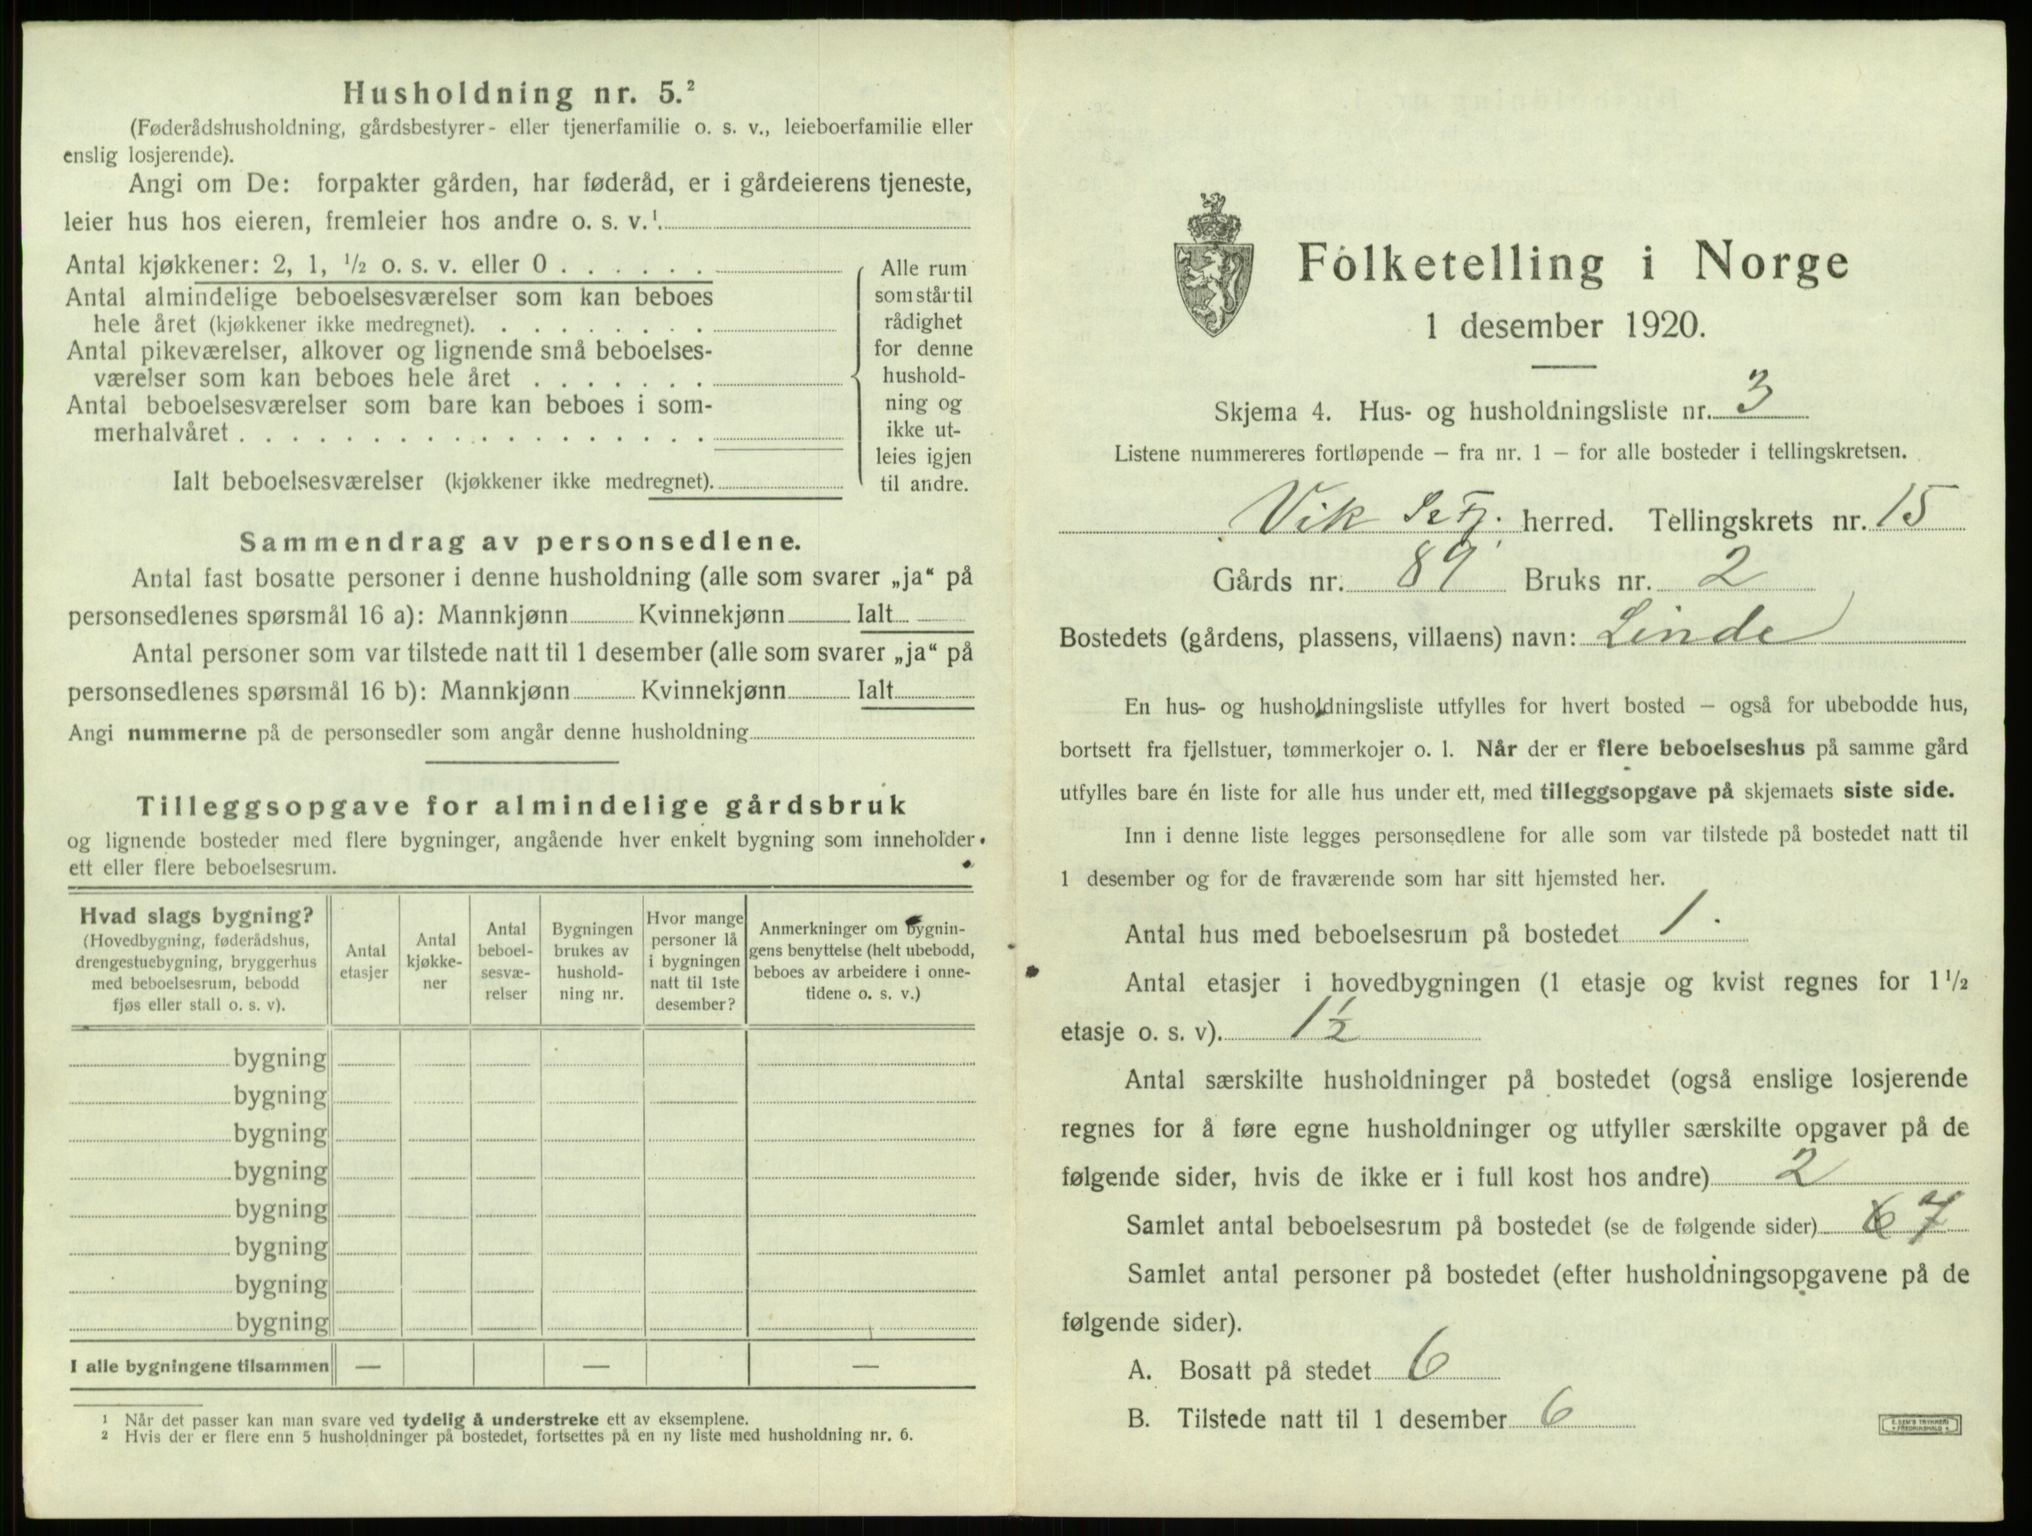 Husholdning nr. 5.²
(Føderådshusholdning, gårdsbestyrer- eller tjenerfamilie o. s. v., leieboerfamilie eller
enslig losjerende).
Angi om De: forpakter gården, har føderåd, er i gårdeierens tjeneste,
leier hus hos eieren, fremleier hos andre o. s. v.¹
Antal kjøkkener: 2, 1, ½ o. s. v. eller 0 . . . . . .
Antal almindelige beboelsesværelser som kan beboes
hele året (kjøkkener ikke medregnet). . . . . . . . .
Antal pikeværelser, alkover og lignende små beboelses-
værelser som kan beboes hele året . . . . . . .
Antal beboelsesværelser som bare kan beboes i som-
merhalvåret . . . . . . . . . . . . . . . . . .
Ialt beboelsesværelser (kjøkkener ikke medregnet).
Alle rum
som står til
rådighet
for denne
hushold-
ning og
ikke ut-
leies igjen
til andre.
Sammendrag av personsedlene.
Antal fast bosatte personer i denne husholdning (alle som svarer „ja“ på
personsedlenes spørsmål 16 a): Mannkjønn Kvinnekjønn Ialt
Antal personer som var tilstede natt til 1 desember (alle som svarer „ja“ på
personsedlenes spørsmål 16 b): Mannkjønn Kvinnekjønn Ialt
Angi nummerne på de personsedler som angår denne husholdning
Tilleggsopgave for almindelige gårdsbruk
og lignende bosteder med flere bygninger, angående hver enkelt bygning som inneholder
ett eller flere beboelsesrum.
Hvad slags bygning?
(Hovedbygning, føderådshus,
drengestuebygning, bryggerhus
med beboelsesrum, bebodd
fjøs eller stall o. s. v).
Antal
etasjer
Antal
kjøkke-
ner
Antal
beboel-
sesvæ-
relser
Bygningen
brukes av
hushold-
ning nr.
Hvor mange
personer lå
i bygningen
natt til 1ste
desember?
Anmerkninger om bygnin-
gens benyttelse (helt ubebodd,
beboes av arbeidere i onne-
tidene o. s. v.)
bygning
bygning
bygning
bygning
bygning
bygning
bygning
bygning
I alle bygningene tilsammen — — —
¹ Når det passer kan man svare ved tydelig å understreke ett av eksemplene.
² Hvis der er flere enn 5 husholdninger på bostedet, fortsettes på en ny liste med husholdning nr. 6.
Folketelling i Norge
1 desember 1920.
Skjema 4. Hus- og husholdningsliste nr. 3
Listene nummereres fortløpende – fra nr. 1 – for alle bosteder i tellingskretsen.
Vik S. Fj. herred. Tellingskrets nr. 15
Gårds nr. 89 Bruks nr. 2
Bostedets (gårdens, plassens, villaens) navn: Linde
En hus- og husholdningsliste utfylles for hvert bosted – også for ubebodde hus,
bortsett fra fjellstuer, tømmerkojer o. l. Når der er flere beboelseshus på samme gård
utfylles bare én liste for alle hus under ett, med tilleggsopgave på skjemaets siste side.
Inn i denne liste legges personsedlene for alle som var tilstede på bostedet natt til
1 desember og for de fraværende som har sitt hjemsted her.
Antal hus med beboelsesrum på bostedet 1.
Antal etasjer i hovedbygningen (1 etasje og kvist regnes for 1½
etasje o. s. v). 1½
Antal særskilte husholdninger på bostedet (også enslige losjerende
regnes for å føre egne husholdninger og utfyller særskilte opgaver på de
følgende sider, hvis de ikke er i full kost hos andre) 2
Samlet antal beboelsesrum på bostedet (se de følgende sider) 6 7
Samlet antal personer på bostedet (efter husholdningsopgavene på de
følgende sider).
A. Bosatt på stedet 6
B. Tilstede natt til 1 desember 6